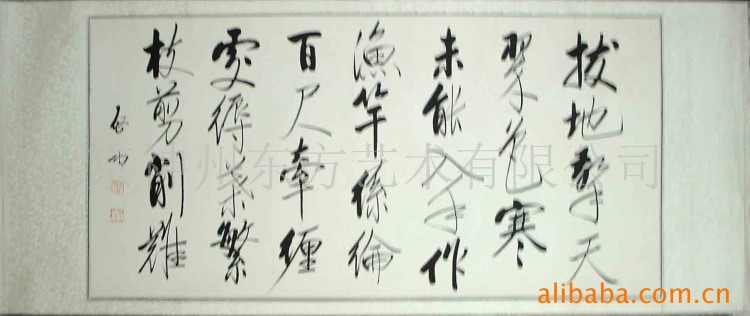 拔地擎天
翠色寒
未能入手作
漁竿絲綸
百尺牽纏
處得葉繁
枝剪削難
啓功
州东方艺术有限公司
alibaba.com.cn